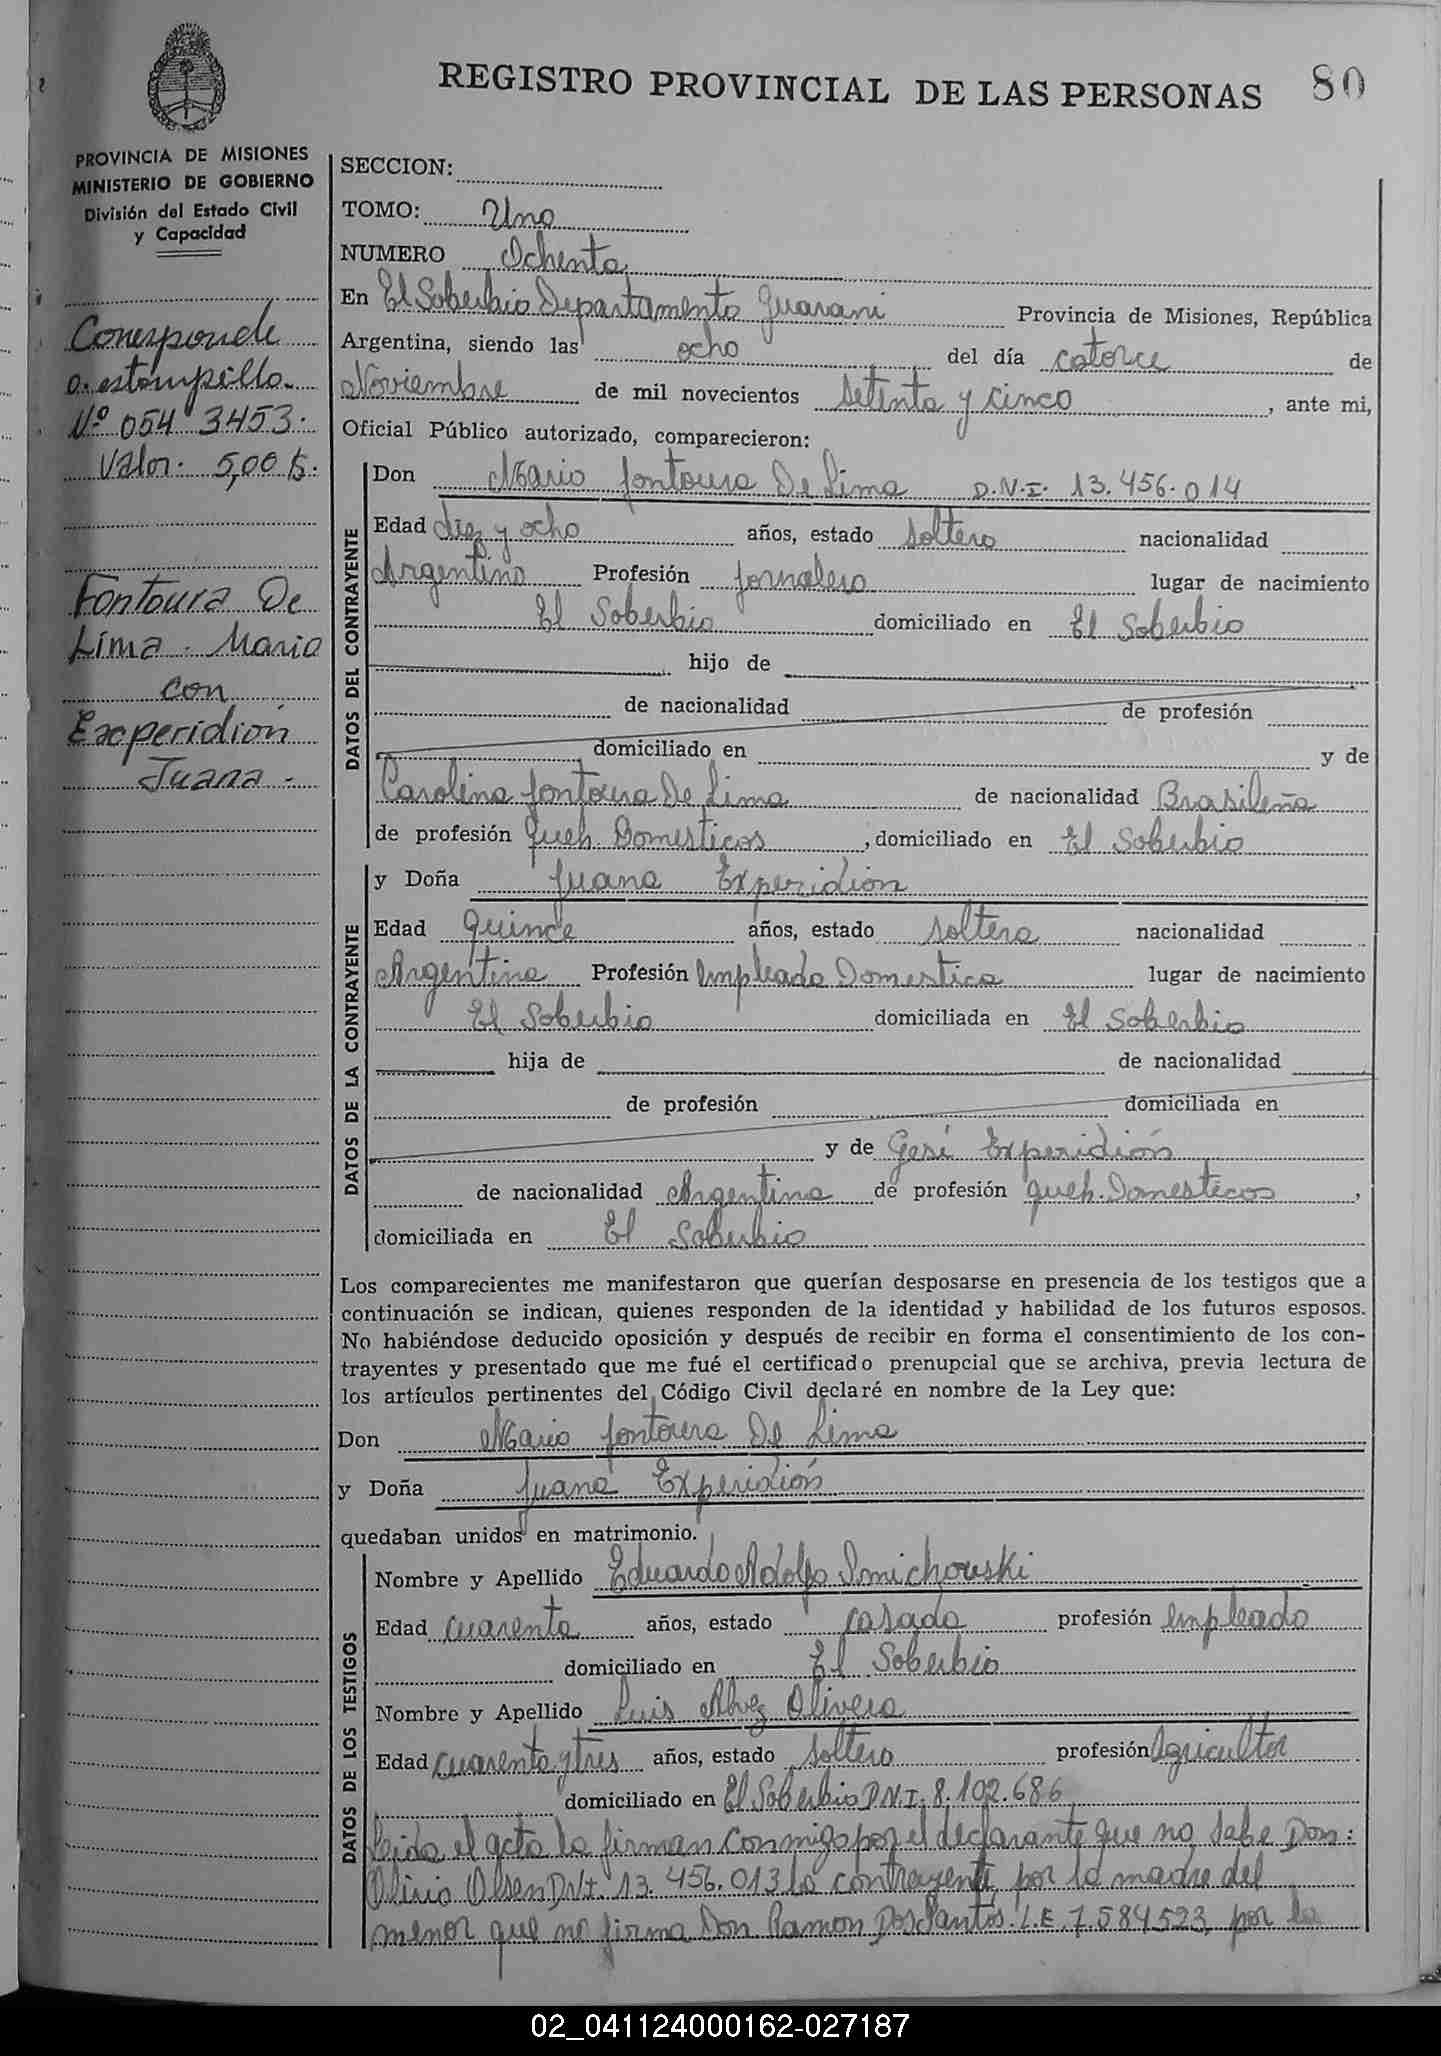 REGISTRO PROVINCIAL DE LAS PERSONAS 80
PROVINCIA DE MISIONES
MINISTERIO DE GOBIERNO
División del Estado Civil
y Capacidad
Corresponde
a estampilla
Nº 054 3453.
Valor. 5,00 $.
Fontoura De
Lima. Mario
con
Exeperidión
Juana.
SECCION:
TOMO: Uno
NUMERO Ochenta
En El Soberbio Departamento Guarani Provincia de Misiones, República
Argentina, siendo las ocho del día catorce de
Noviembre de mil novecientos setenta y cinco, ante mi,
Oficial Público autorizado, comparecieron:
DATOS DEL CONTRAYENTE
Don Mario Fontoura De Lima D.N.I. 13.456.014
Edad diez y ocho años, estado soltero nacionalidad
Argentino Profesión Jornalero lugar de nacimiento
El Soberbio domiciliado en El Soberbio
hijo de
de nacionalidad de profesión
domiciliado en y de
Carolina Fontoura De Lima de nacionalidad Brasileña
de profesión Queh. Domesticos, domiciliado en El Soberbio
DATOS DE LA CONTRAYENTE
y Doña Juana Experidion
Edad Quince años, estado soltera nacionalidad
Argentina Profesión Empleada Domestica lugar de nacimiento
El Soberbio domiciliada en El Soberbio
hija de de nacionalidad
de profesión domiciliada en
y de Gesi Experidión
de nacionalidad Argentina de profesión queh. Domesticos,
domiciliada en El Soberbio
Los comparecientes me manifestaron que querían desposarse en presencia de los testigos que a
continuación se indican, quienes responden de la identidad y habilidad de los futuros esposos.
No habiéndose deducido oposición y después de recibir en forma el consentimiento de los con-
trayentes y presentado que me fué el certificado prenupcial que se archiva, previa lectura de
los artículos pertinentes del Código Civil declaré en nombre de la Ley que:
Don Mario Fontoura De Lima
y Doña Juana Experidión
quedaban unidos en matrimonio.
DATOS DE LOS TESTIGOS
Nombre y Apellido Eduardo Adolfo Smichowski
Edad cuarenta años, estado casado profesión Empleado
domiciliado en El Soberbio
Nombre y Apellido Luis Alvez Olivera
Edad cuarenta y tres años, estado soltero profesión Agricultor
domiciliado en El Soberbio D.N.I. 8.102.686
Leida el acta la firman conmigo por el declarante que no sabe Don:
Olirio Olsen DNI. 13.456.013 la contrayente, por la madre del
menor que no firma Don Ramon Dos Santos. L.E. 7.584523, por la
02_041124000162-027187